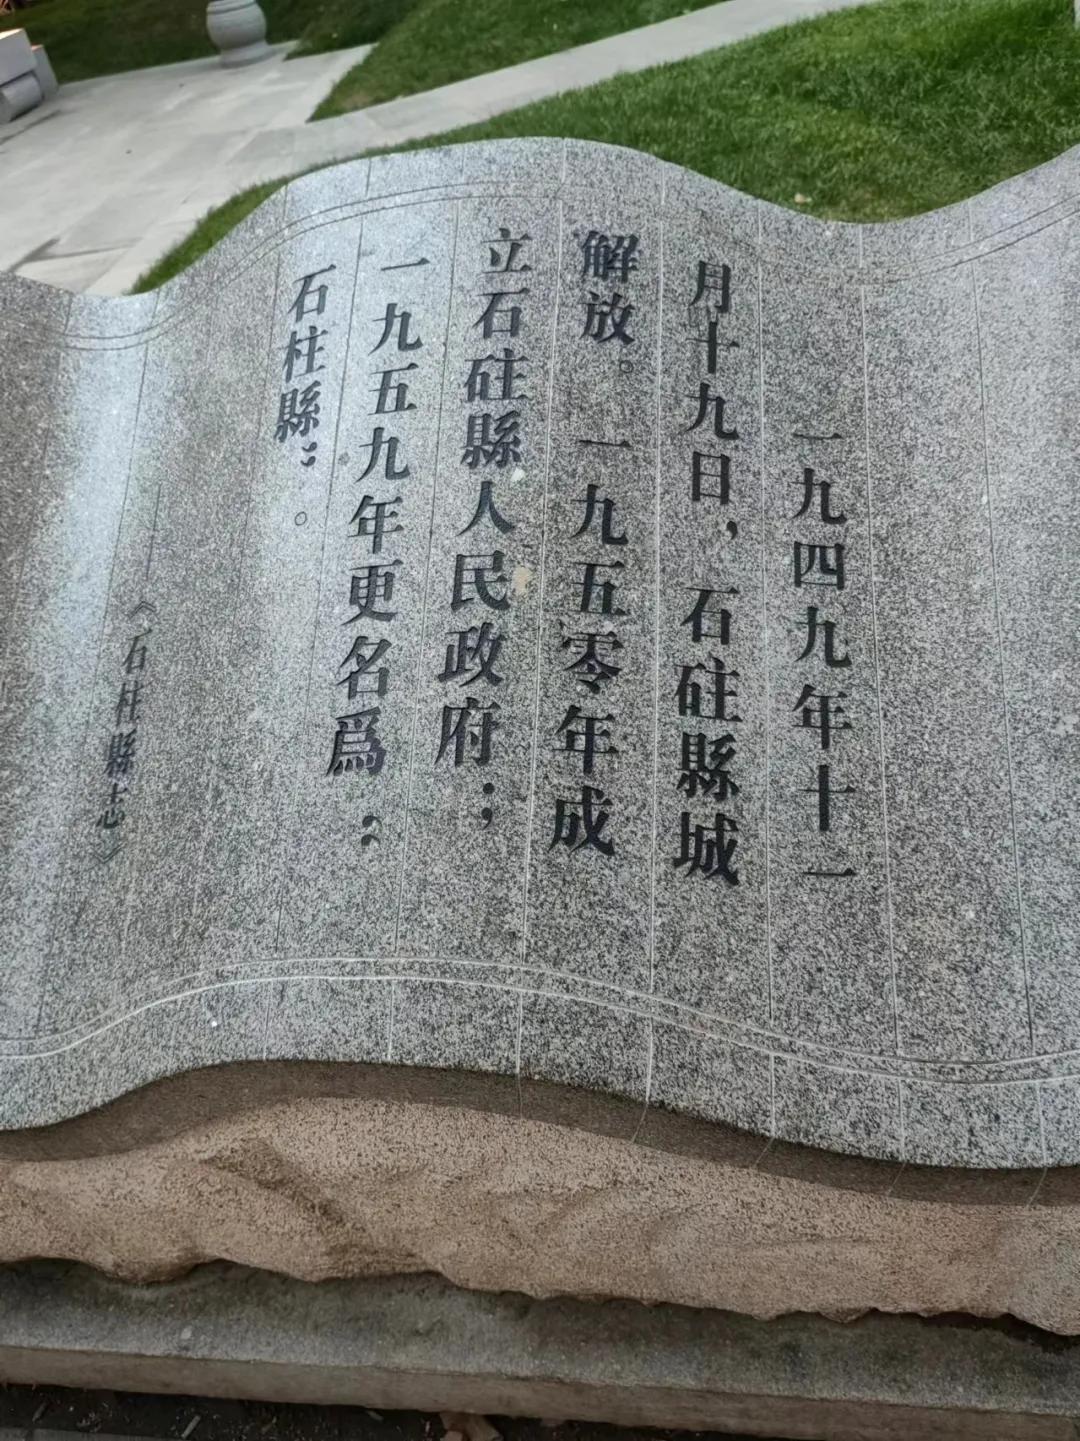 一九四九年十一
月十九日，石砫縣城
解放。一九五零年成
立石砫縣人民政府；
一九五九年更名爲：
石柱縣：。
——《石柱縣志》